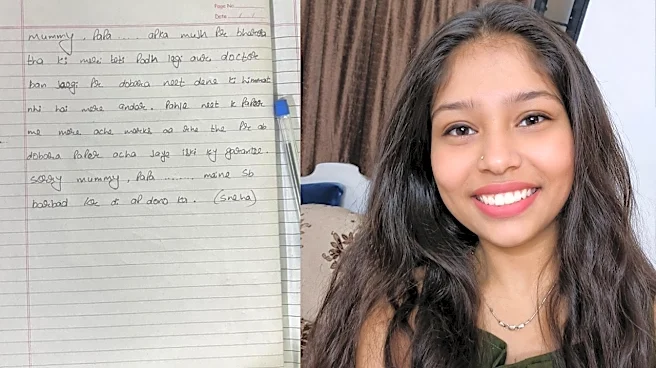 Page No.
Date
mummy, Papa ..... apka mujh Pe bharosa
tha ki meri beti Padh legi aur doctor
ban jaegi Pr dobara neet dene ki himmat
nhi hai mere andar. Pahle neet k Paper
me mere ache marks aa rhe the Pr ab
dobara Paper acha jaye iski ky garantee.
sorry mummy, Papa ........ maine sb
barbad kr di ap dono ka. (Sneha)